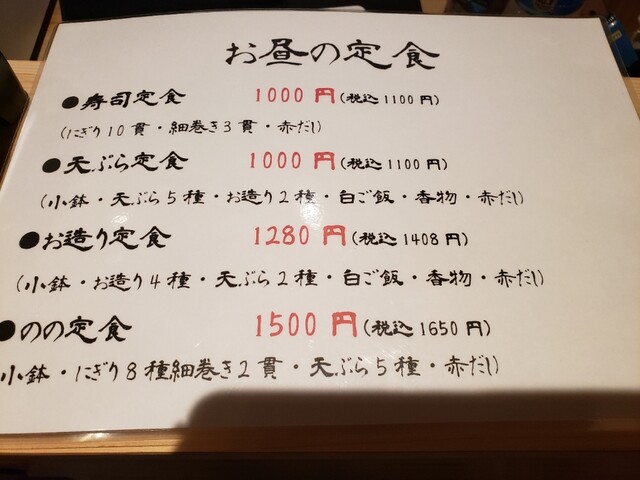 お昼の定食
●寿司定食 1000円(税込1100円)
(にぎり10貫・細巻き3貫・赤だし)
●天ぷら定食 1000円(税込1100円)
(小鉢・天ぷら5種・お造り2種・白ご飯・香物・赤だし)
●お造り定食 1280円(税込1408円)
(小鉢・お造り4種・天ぷら2種・白ご飯・香物・赤だし)
●のの定食 1500円(税込1650円)
小鉢・にぎり8種細巻き2貫・天ぷら5種・赤だし)